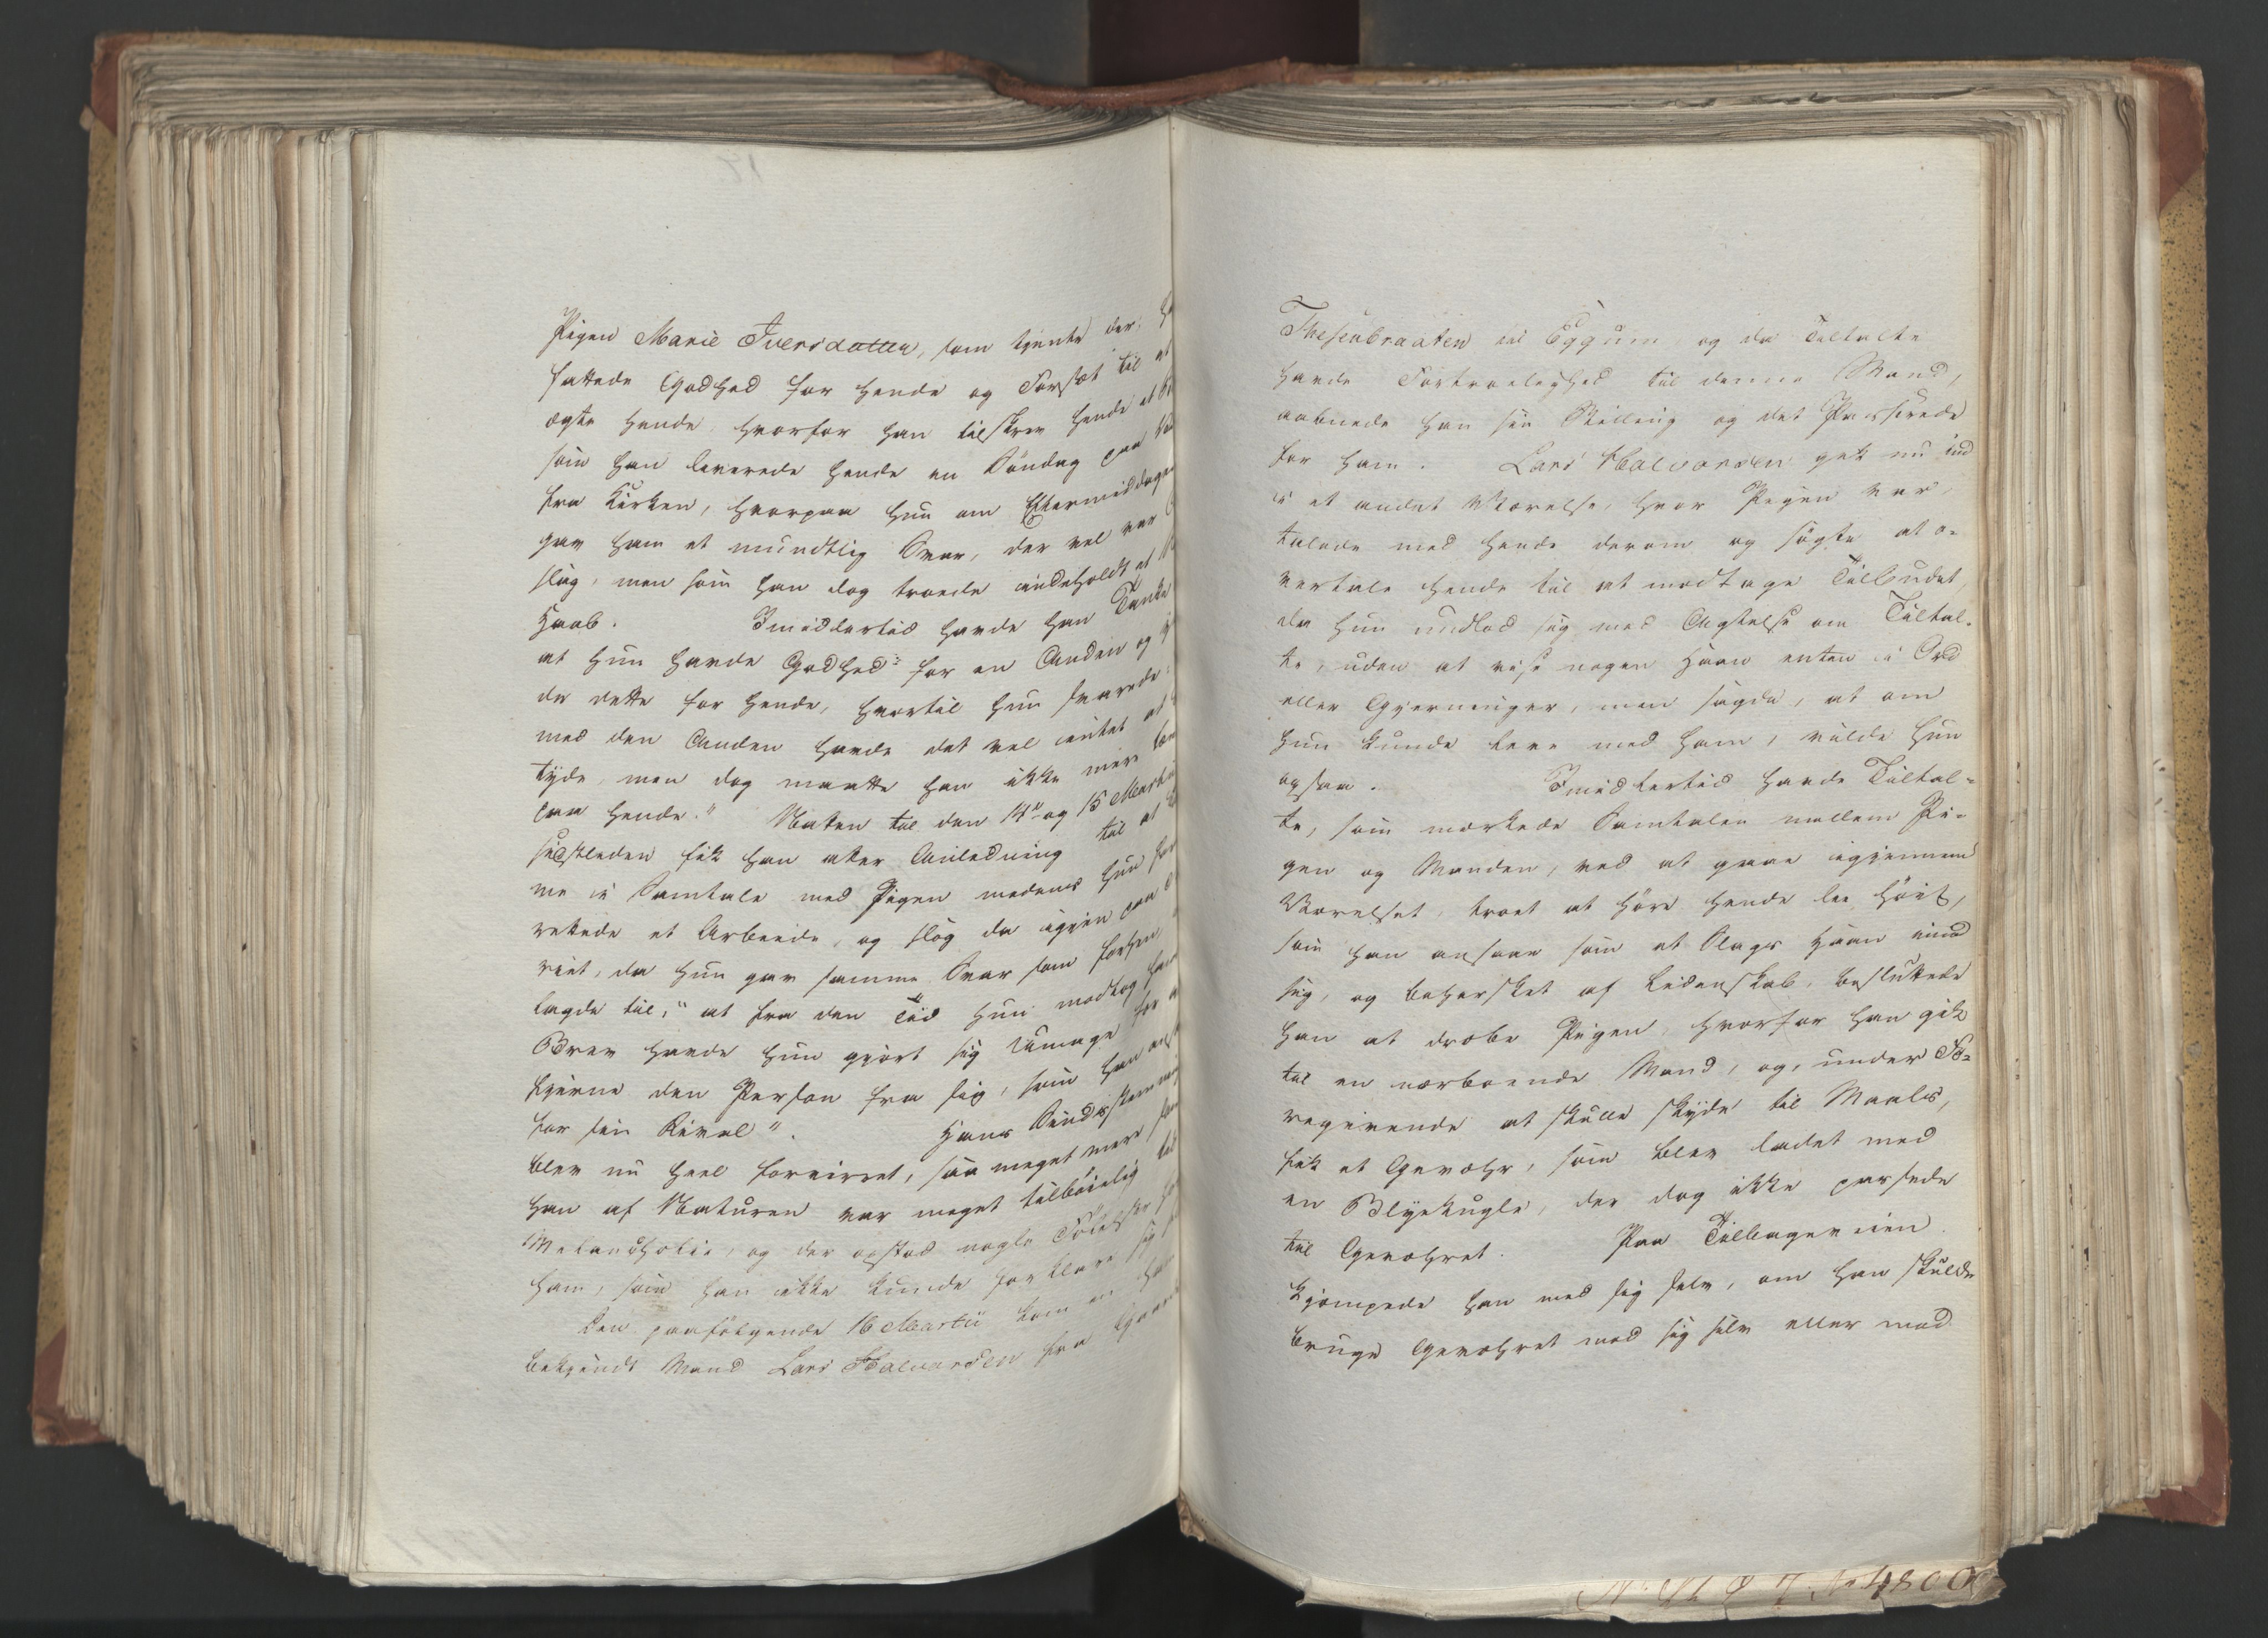 Pigen Marie Iversdatter, som tjente der,
fattede Godhed for hende og Forsæt til at
ægte hende hvorfor han tilskrev hende et
som han leverede hende en Söndag paa
fra Kirken, hvorpaa hun om Eftermiddagen
gav ham et mundtlig Svar, der vel var
slag, men som han dog troede indeholdt et
Haab. Imidlertid havde han Tanke
at hun havde Godhed for en Anden og
de dette for hende, hvortil hun svarede:
med den Anden havde det vel intet at
tyde, men dog maatte han ikke mere
paa hende." Natten til den 14de og 15 Martii
sidstleden fik han atter Anledning til at
me i Samtale med Pigen medens hun
rettede et Arbeide, og slog da igjen paa
riet, da hun gav samme Svar som forhen
lagde til, "at fra den Tid hun modtog hans
Brev havde hun gjört sig Umage for at
fjerne den Person fra sig, som han
for sin Rival". Hans Sindsstemning
blev nu heel forvirret, saa meget mere som
han af Naturen var meget tilböielig til
Melancholie, og der opstod nogle Fölelser hos
ham, som han ikke kunde forklare sig
Den paafölgende 16 Martii kom en ham
bekjendt Mand Lars Halvorsen fra
Thesenbraaten til Eggum og da Tiltalte
havde Fortroelighed til denne Mand,
aabnede han sin Stilling og det Passerede
for ham. Lars Halvorsen gik nu ind
i et andet Værelse, hvor Pigen var,
talede med hende derom og sögte at o-
vertale hende til at modtage Tilbudet,
da hun undlod sig med Agtelse om Tiltal-
te, uden at vise nogen Haan enten i Ord
eller Gjerninger, men sagde, at om
hun kunde leve med ham, vilde hun
ogsaa. Imidlertid havde Tiltal-
te, som mærkede Samtalen mellem Pi-
gen og Manden, ved at gaae igjennem
Værelset, troet at höre hende lee höit,
som han ansaae som et Slags Haan imod
sig, og behersket af Lidenskab, besluttede
han at dræbe Pigen, hvorfor han gik
til en nærboende Mand, og, under Fo-
regivende at skulle skyde til Maals,
fik et Gevæhr, som blev ladet med
en Blyekugle, der dog ikke passede
til Gevæhret. Paa Tilbageveien
kjæmpede han med sig selv, om han skulde
bruge Gevæhret mod sig selv eller mod